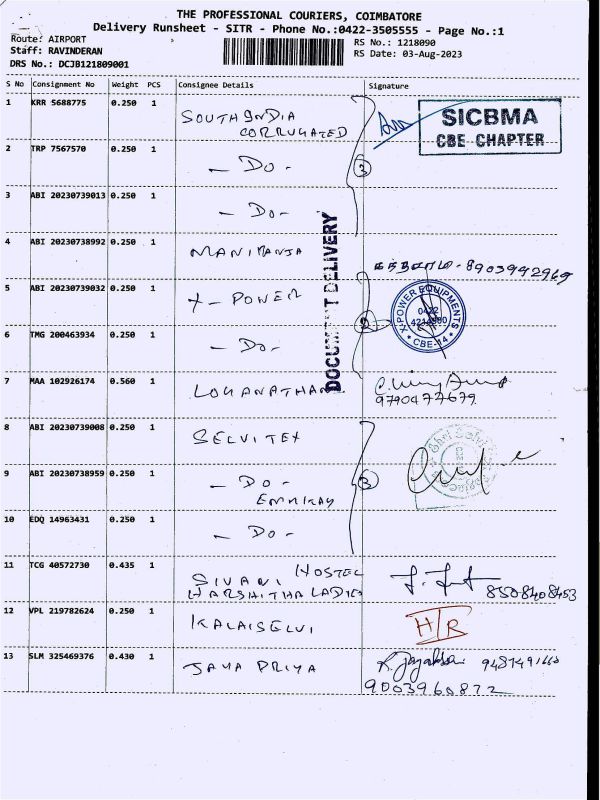 THE PROFESSIONAL COURIERS, COIMBATORE
Delivery Runsheet - SITR - Phone No.:0422-3505555 - Page No.:1
Route: AIRPORT
RS No.: 1218090
Staff: RAVINDERAN
RS Date: 03-Aug-2023
DRS No.: DCJB121809001
S No Consignment No Weight PCS Consignee Details Signature
1 KRR 5688775 0.250 1 SOUTH INDIA
CORRUGATED
SICBMA
CBE CHAPTER
2 TRP 7567570 0.250 1 - DO -
3
3 ABI 20230739013 0.250 1 - DO -
4 ABI 20230738992 0.250 1
8903942969
DOCUMENT DELIVERY
5 ABI 20230739032 0.250 1 X - POWER
X-POWER EQUIPMENTS
0422
CBE-14
6 TMG 200463934 0.250 1 - DO -
2
7 MAA 102926174 0.560 1 LOGANATHAN
9790477679
8 ABI 20230739008 0.250 1 SELVITEX
9 ABI 20230738959 0.250 1 - DO -
3
10 EDQ 14963431 0.250 1 - DO -
11 TCG 40572730 0.435 1 SIVANI HOSTEL
HARSHITHA LADIES
8508408453
12 VPL 219782624 0.250 1 KALAISELVI
H/R
13 SLM 325469376 0.430 1 JAYA PRIYA
9003960872